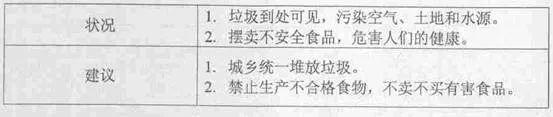 状况
1. 垃圾到处可见，污染空气、土地和水源。
2. 摆卖不安全食品，危害人们的健康。
建议
1. 城乡统一堆放垃圾。
2. 禁止生产不合格食物，不卖不买有害食品。